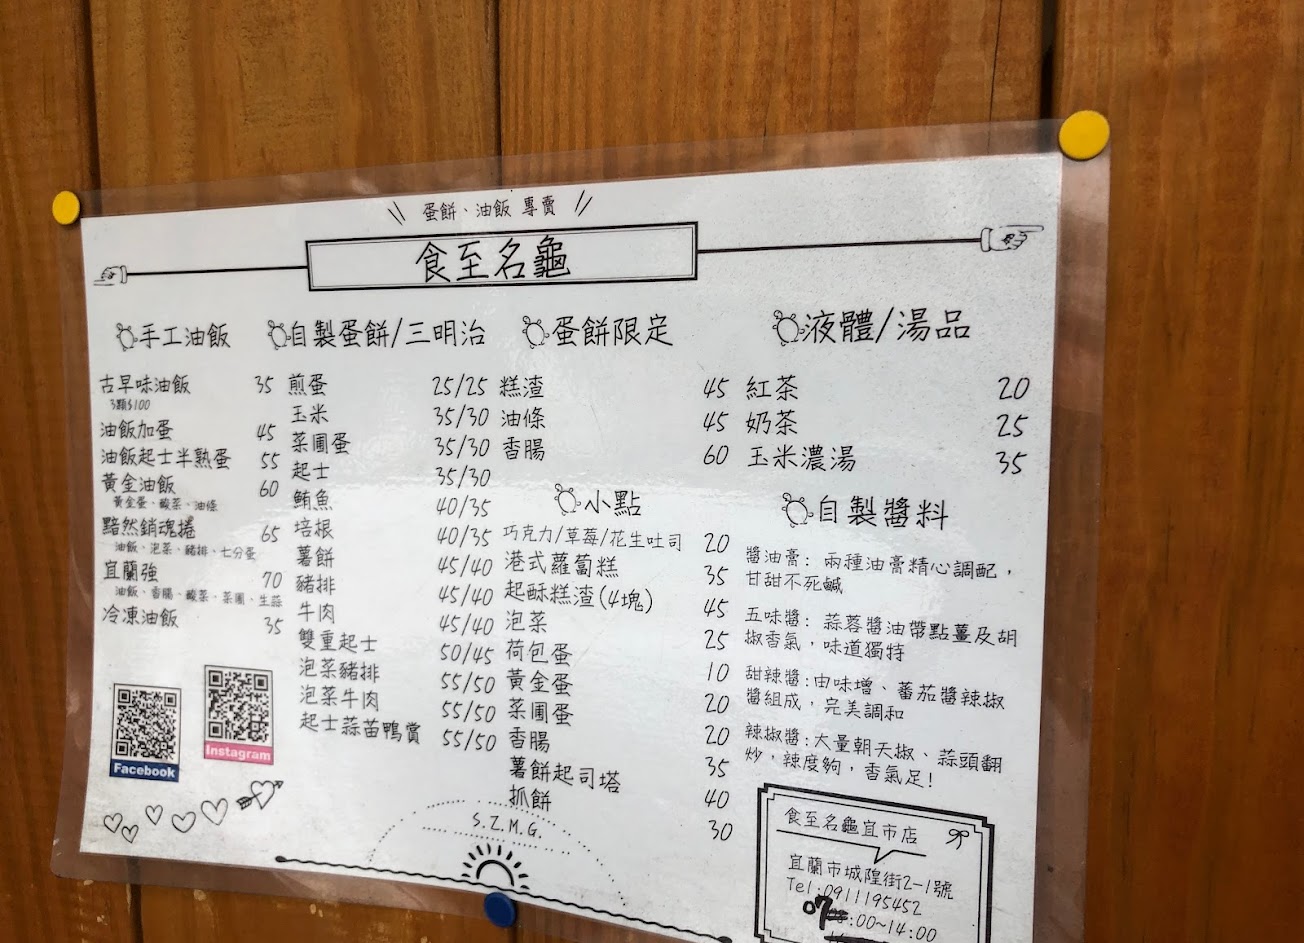 蛋餅、油飯 專賣
食至名龜
手工油飯
古早味油飯 35
3顆$100
油飯加蛋 45
油飯起士半熟蛋 55
黃金油飯 60
黃金蛋、酸菜、油條
黯然銷魂捲 65
油飯、泡菜、豬排、七分蛋
宜蘭強 70
油飯、香腸、酸菜、菜圃、生蒜
冷凍油飯 35
Facebook
Instagram
自製蛋餅/三明治
煎蛋 25/25
玉米 35/30
菜圃蛋 35/30
起士 35/30
鮪魚 40/35
培根 40/35
薯餅 45/40
豬排 45/40
牛肉 45/40
雙重起士 50/45
泡菜豬排 55/50
泡菜牛肉 55/50
起士蒜苗鴨賞 55/50
蛋餅限定
糕渣 45
油條 45
香腸 60
小點
巧克力/草莓/花生吐司 20
港式蘿蔔糕 35
起酥糕渣(4塊) 45
泡菜 25
荷包蛋 10
黃金蛋 20
菜圃蛋 20
香腸 35
薯餅起司塔 40
抓餅 30
S.Z.M.G.
液體/湯品
紅茶 20
奶茶 25
玉米濃湯 35
自製醬料
醬油膏: 兩種油膏精心調配，
甘甜不死鹹
五味醬: 蒜蓉醬油帶點薑及胡
椒香氣，味道獨特
甜辣醬:由味增、蕃茄醬辣椒
醬組成，完美調和
辣椒醬:大量朝天椒、蒜頭翻
炒，辣度夠，香氣足!
食至名龜宜市店
宜蘭市城隍街2-1號
Tel:0911195452
07:00~14:00